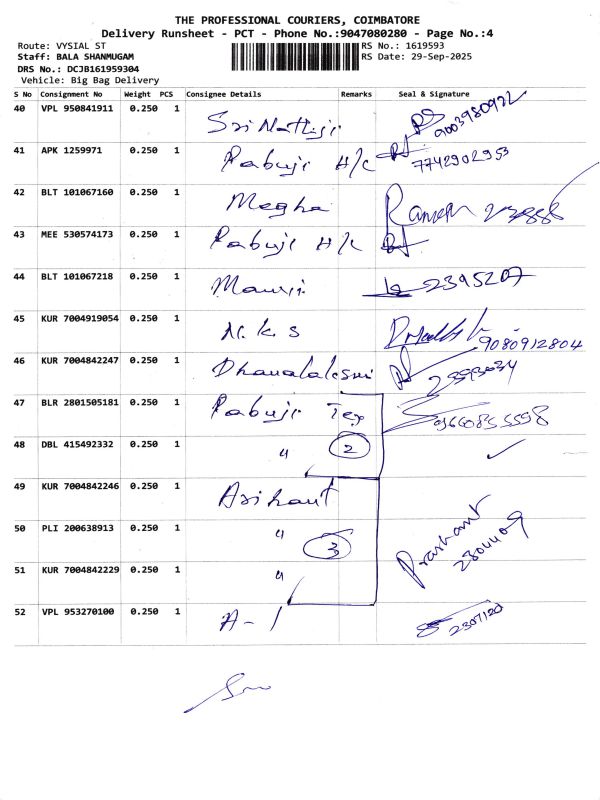 THE PROFESSIONAL COURIERS, COIMBATORE
Delivery Runsheet - PCT - Phone No.:9047080280 - Page No.:4
Route: VYSIAL ST RS No.: 1619593
Staff: BALA SHANMUGAM RS Date: 29-Sep-2025
DRS No.: DCJB161959304
Vehicle: Big Bag Delivery
S No Consignment No Weight PCS Consignee Details Remarks Seal & Signature
40 VPL 950841911 0.250 1 Sri Nathji 9003980922
41 APK 1259971 0.250 1 Pabuji H/c 7742902953
42 BLT 101067160 0.250 1 Megha
43 MEE 530574173 0.250 1 Pabuji H/c
44 BLT 101067218 0.250 1 2395207
45 KUR 7004919054 0.250 1 N.K.S 9080912804
46 KUR 7004842247 0.250 1
47 BLR 2801505181 0.250 1 Pabuji Tex
48 DBL 415492332 0.250 1 " 2
49 KUR 7004842246 0.250 1 Arihant
50 PLI 200638913 0.250 1 " 3 Prashant
51 KUR 7004842229 0.250 1 " 2804409
52 VPL 953270100 0.250 1 A-1 2307120